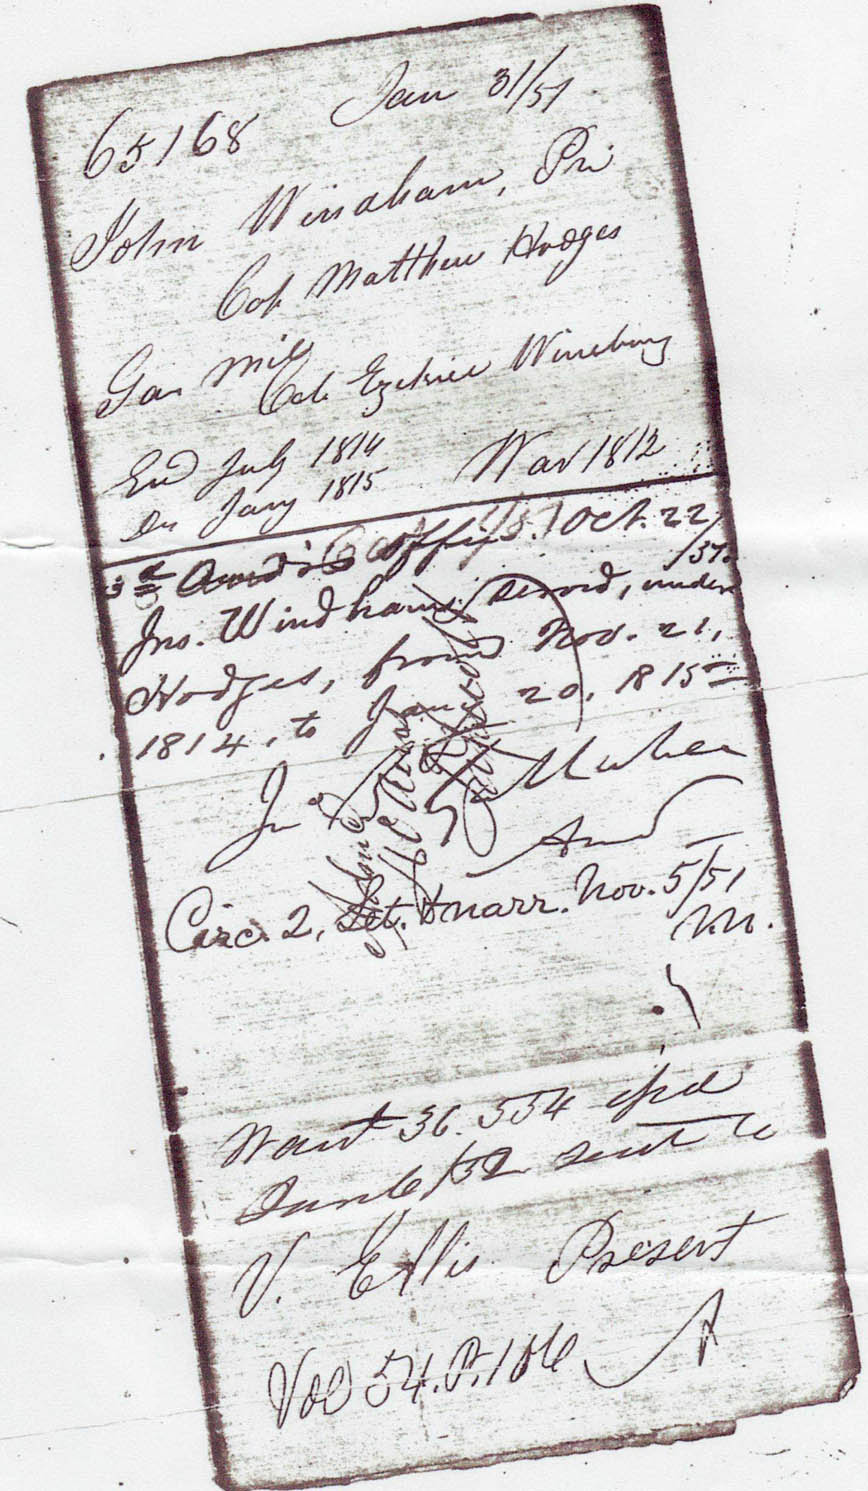 65168 Jan 31/51
John Windham, Pri
Capt Matthew Hodges
Geo. Mil
Col. Ezekiel Wineburg
End July 1814
Dis Jany 1815 War 1812
3d Audr's Office, Oct. 22/51.
Jno. Windham served, under
Hodges, from Nov. 21,
1814, to Jany 20, 1815
Jno
Aud
Circ. 2, Let. & narr. Nov. 5/51
Want 36.554 ipd
June 6/52 sent to
V. Ellis Present
Vol 54. P. 106 A